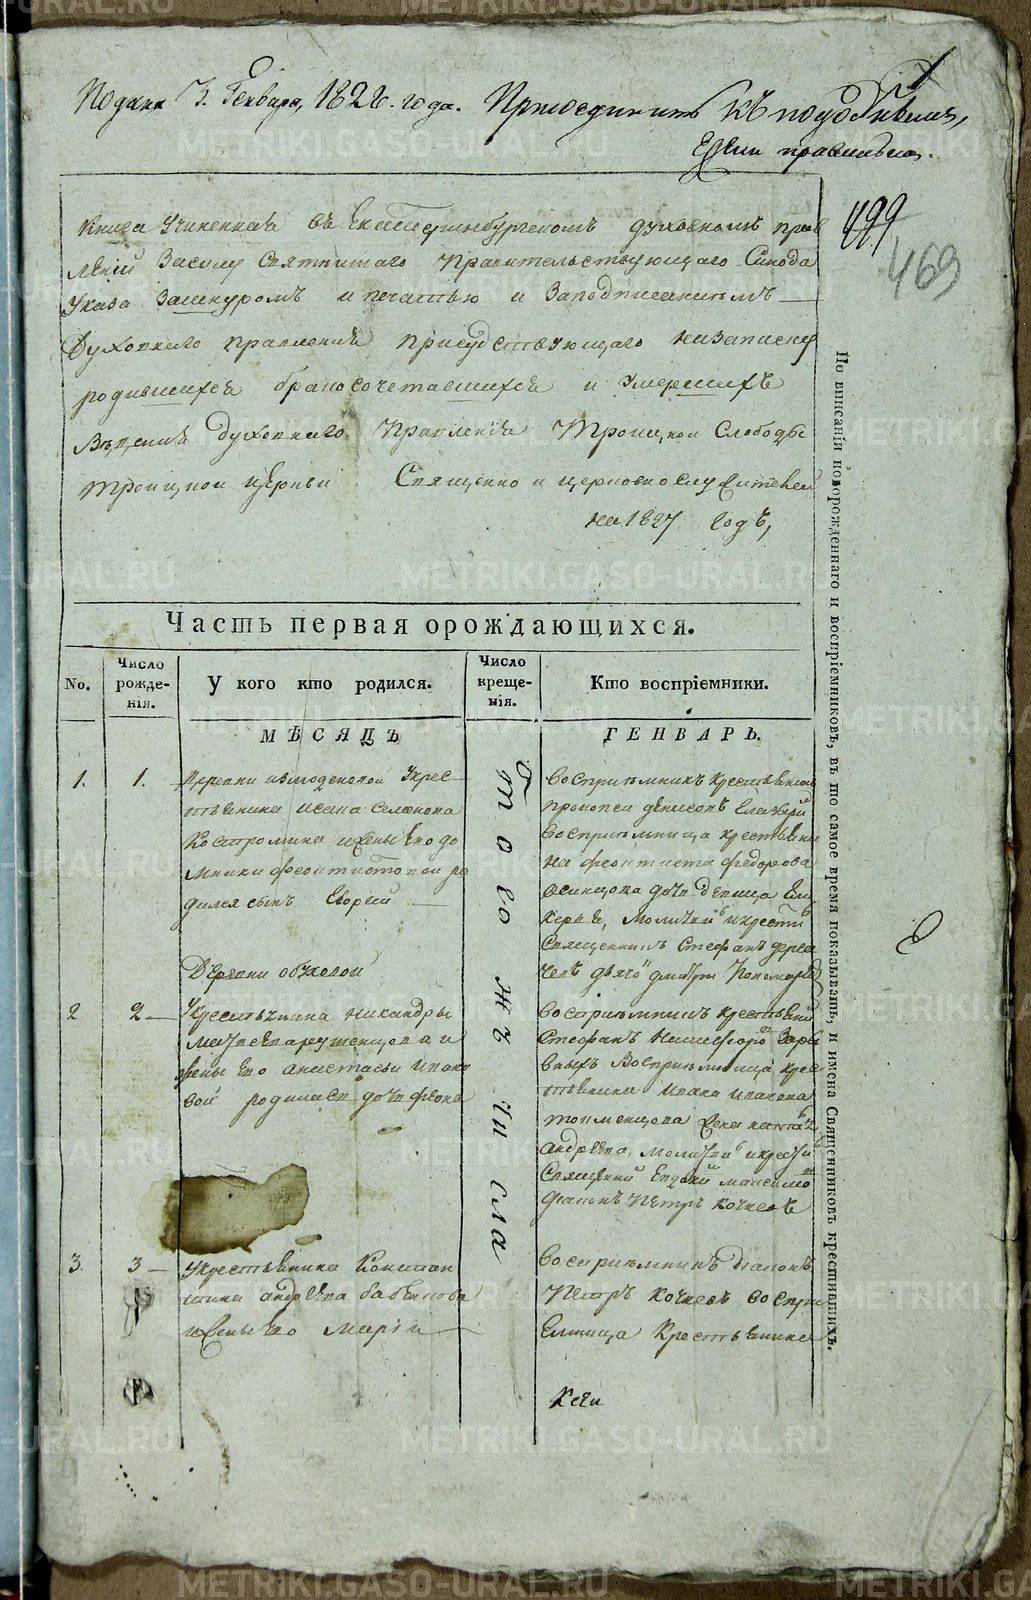 Подана 3. Генваря, 1828. года. Присоединить къ подобнымъ,
если правильна.
1
499
469
Книга Учиненная въ Екатеринбургскомъ духовномъ прав
лении Засилу Святѣйшаго Правительствующаго Синода
Указа Зашнуромъ и печатью и Заподписаниемъ
Духовнаго правления присудствующаго назаписку
родившихся бракосочетавшихся и умершихъ
Вѣдения духовнаго Правления Троицкой Слободы
троицкой церкви Священно и церковнослужителей
на 1827 Годъ,
Часть первая орождающихся.
No.
Число рожде-нія.
У кого кто родился.
Число креще-нія.
Кто воспріемники.
МѢСЯЦЪ
ГЕНВАРЬ.
1.
1.
Деревни измоденовой Укрес
тьянина Исака Семенова
Костромина иЖены Его До
мники феоктистовой ро
дился сынъ Георгий
Тогожъ числа
Восприемникъ Крестьянинъ
прокопей денисовъ Елазарй
восприемница крестьяни
на феоктиста федорова
Осинцова дочь девица
молитвй икрести
Священникъ Стефанъ
дьячо дмитри Пономаре
Деревни обуховой
2
2
Укрестьянина Никандры
Матвеева
жены Его анастасьи ивано
вой родилась дочь фекла
восприемникъ крестьянй
Стефанъ Никифоро
Восприемница крес
тьянина Ивана Иванова
Жена
андреева, молитвй икрести
Священий Евдокй максимо
диаконъ Петръ кочневъ
3.
3
Укрестьянина Констан
тина андреева бабинова
иЖены Его Марии
восприемникъ диаконъ
Петръ кочневъ воспри
Емница Крестьянина
Ксен
По вписаніи новорожденнаго и воспріемниковъ, въ то самое время показывать, и имена Священниковъ крестившихъ.
METRIKI.GASO-URAL.RU